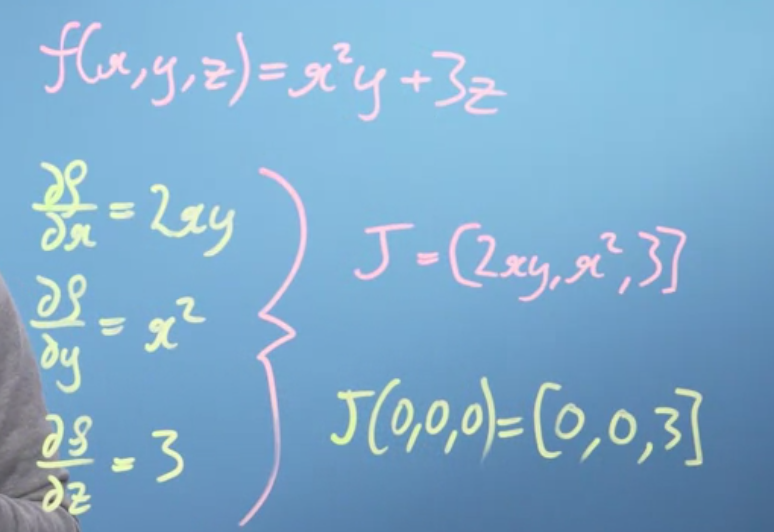 f(x,y,z)=x²y+3z
∂f/∂x = 2xy
∂f/∂y = x²
∂f/∂z = 3
J=[2xy,x²,3]
J(0,0,0)=[0,0,3]